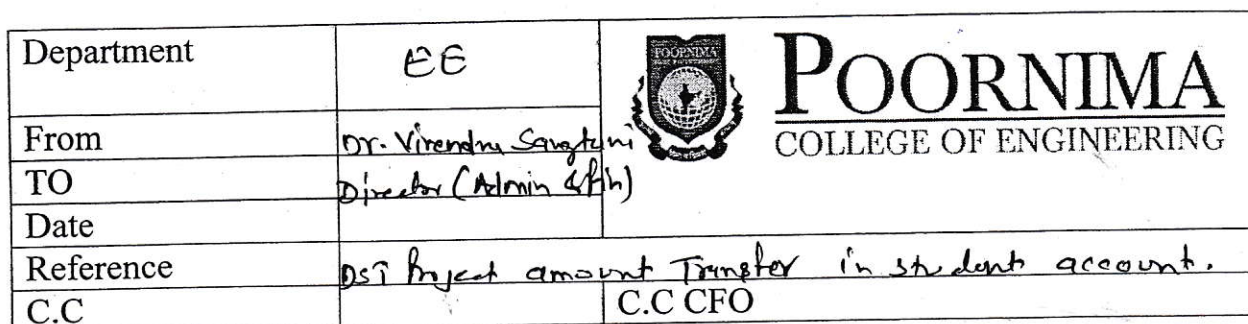 Department EE
POORNIMA
POORNIMA
COLLEGE OF ENGINEERING
From Dr. Virendra Sangtani
TO Director (Admin & Fin)
Date
Reference DST Project amount Transfer in student account.
C.C C.C CFO